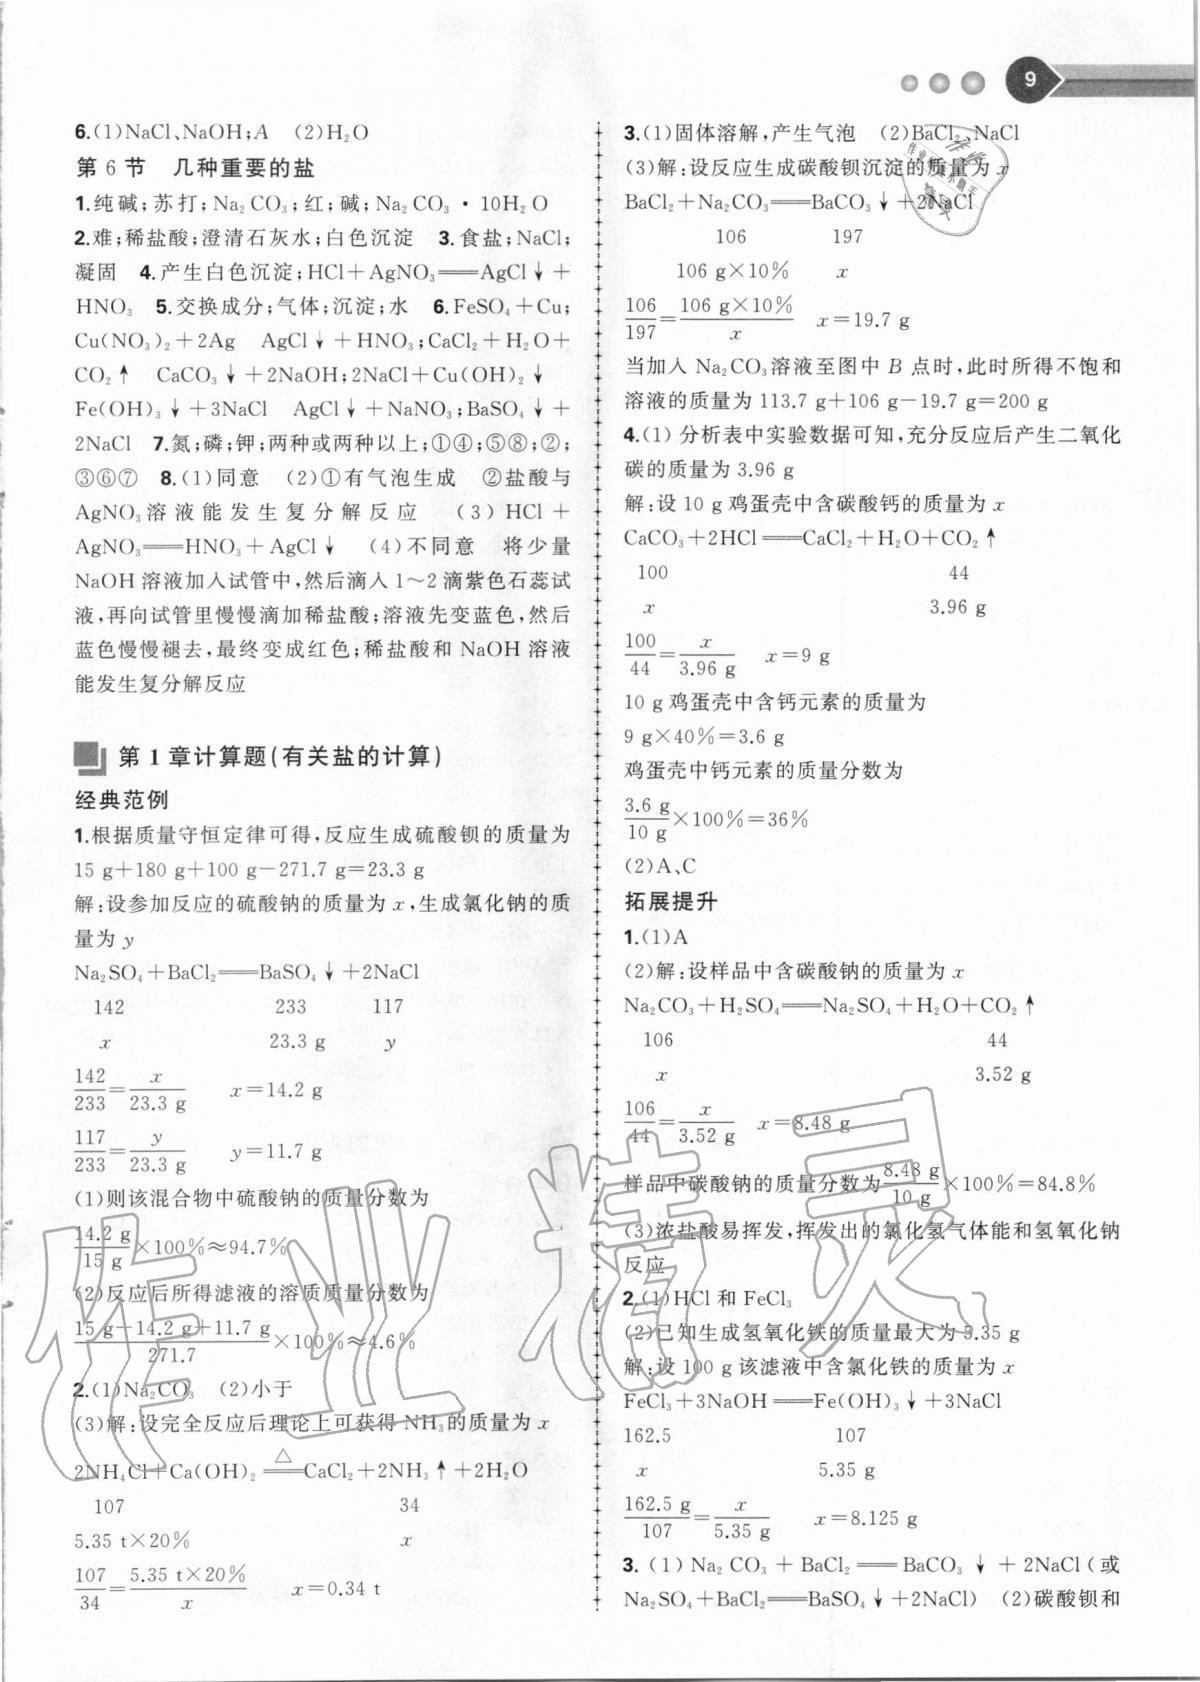 9
6.(1)NaCl、NaOH;A (2)H₂O
第 6 节 几种重要的盐
1.纯碱;苏打;Na₂CO₃;红;碱;Na₂CO₃·10H₂O
2.难;稀盐酸;澄清石灰水;白色沉淀 3.食盐;NaCl;
凝固 4.产生白色沉淀;HCl+AgNO₃══AgCl↓+
HNO₃ 5.交换成分;气体;沉淀;水 6.FeSO₄+Cu;
Cu(NO₃)₂+2Ag AgCl↓+HNO₃;CaCl₂+H₂O+
CO₂↑ CaCO₃↓+2NaOH;2NaCl+Cu(OH)₂↓
Fe(OH)₃↓+3NaCl AgCl↓+NaNO₃;BaSO₄↓+
2NaCl 7.氮;磷;钾;两种或两种以上;①④;⑤⑧;②;
③⑥⑦ 8.(1)同意 (2)①有气泡生成 ②盐酸与
AgNO₃溶液能发生复分解反应 (3)HCl+
AgNO₃══HNO₃+AgCl↓ (4)不同意 将少量
NaOH溶液加入试管中,然后滴入1～2滴紫色石蕊试
液,再向试管里慢慢滴加稀盐酸;溶液先变蓝色,然后
蓝色慢慢褪去,最终变成红色;稀盐酸和NaOH溶液
能发生复分解反应
第1章计算题(有关盐的计算)
经典范例
1.根据质量守恒定律可得,反应生成硫酸钡的质量为
15 g+180 g+100 g-271.7 g=23.3 g
解:设参加反应的硫酸钠的质量为x,生成氯化钠的质
量为y
Na₂SO₄+BaCl₂══BaSO₄↓+2NaCl
142 233 117
x 23.3 g y
142/233=x/23.3 g x=14.2 g
117/233=y/23.3 g y=11.7 g
(1)则该混合物中硫酸钠的质量分数为
14.2 g/15 g×100%≈94.7%
(2)反应后所得滤液的溶质质量分数为
15 g-14.2 g+11.7 g/271.7×100%≈4.6%
2.(1)Na₂CO₃ (2)小于
(3)解:设完全反应后理论上可获得NH₃的质量为x
2NH₄Cl+Ca(OH)₂ ══△ CaCl₂+2NH₃↑+2H₂O
107 34
5.35 t×20% x
107/34=5.35 t×20%/x x=0.34 t
3.(1)固体溶解,产生气泡 (2)BaCl₂、NaCl
(3)解:设反应生成碳酸钡沉淀的质量为x
BaCl₂+Na₂CO₃══BaCO₃↓+2NaCl
106 197
106 g×10% x
106/197=106 g×10%/x x=19.7 g
当加入Na₂CO₃溶液至图中B点时,此时所得不饱和
溶液的质量为113.7 g+106 g-19.7 g=200 g
4.(1)分析表中实验数据可知,充分反应后产生二氧化
碳的质量为3.96 g
解:设10 g鸡蛋壳中含碳酸钙的质量为x
CaCO₃+2HCl══CaCl₂+H₂O+CO₂↑
100 44
x 3.96 g
100/44=x/3.96 g x=9 g
10 g鸡蛋壳中含钙元素的质量为
9 g×40%=3.6 g
鸡蛋壳中钙元素的质量分数为
3.6 g/10 g×100%=36%
(2)A、C
拓展提升
1.(1)A
(2)解:设样品中含碳酸钠的质量为x
Na₂CO₃+H₂SO₄══Na₂SO₄+H₂O+CO₂↑
106 44
x 3.52 g
106/44=x/3.52 g x=8.48 g
样品中碳酸钠的质量分数为8.48 g/10 g×100%=84.8%
(3)浓盐酸易挥发,挥发出的氯化氢气体能和氢氧化钠
反应
2.(1)HCl和FeCl₃
(2)已知生成氢氧化铁的质量最大为5.35 g
解:设100 g该滤液中含氯化铁的质量为x
FeCl₃+3NaOH══Fe(OH)₃↓+3NaCl
162.5 107
x 5.35 g
162.5 g/107=x/5.35 g x=8.125 g
3.(1)Na₂CO₃+BaCl₂══BaCO₃↓+2NaCl(或
Na₂SO₄+BaCl₂══BaSO₄↓+2NaCl) (2)碳酸钡和
作业精灵